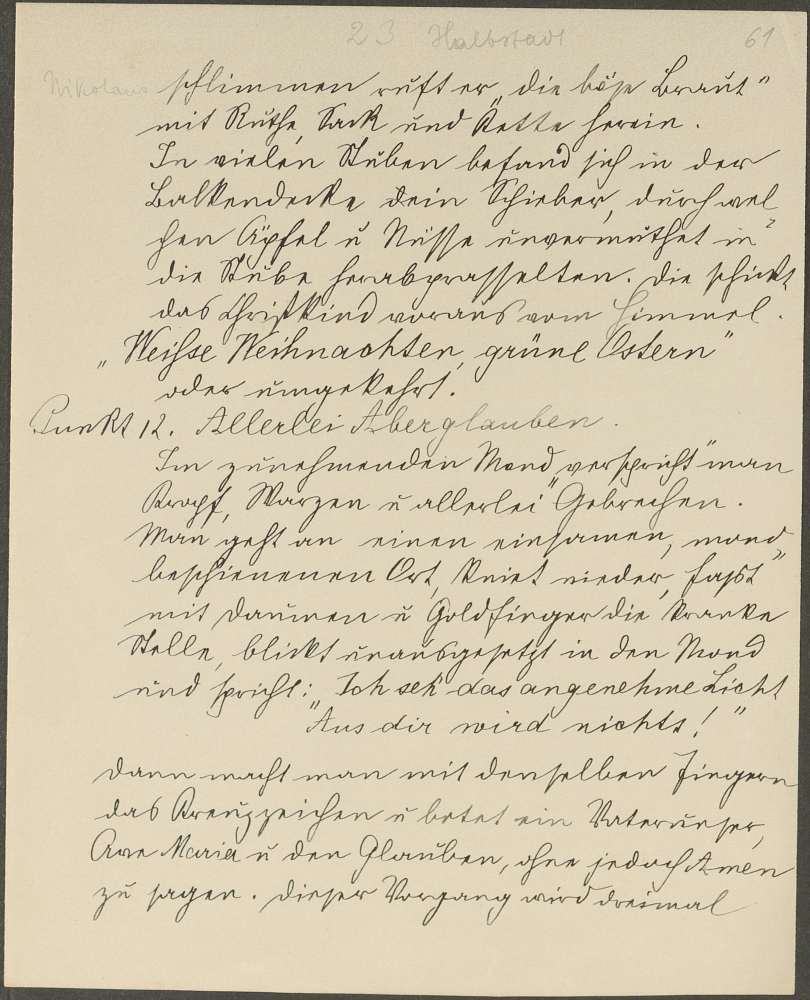 23 Halbstadt 61
Nikolaus schlimmen ruft er „die böse Braut"
mit Ruthe, Sack und Kette herein.
In vielen Stuben befand sich in der
Balkendecke ein Schieber, durch wel
chen Äpfel u Nüsse unvermuthet in
die Stube herabprasselten. Die schickt
das Christkind voraus vom Himmel.
„Weihse Weihnachten, grüne Ostern"
oder umgekehrt.
Punkt 12. Allerlei Aberglauben.
Im zunehmenden Mond „verspricht" man
Kropf, Warzen u allerlei Gebrechen.
Man geht an einen einsamen, mond
beschienenen Ort, kniet nieder, fasst
mit Daumen u Goldfinger die kranke
Stelle, blickt unausgesetzt in den Mond
und spricht: „Ich seh das angenehme Licht
„Aus dir wird nichts!"
Dann macht man mit denselben Fingern
das Kreuzzeichen u betet ein Vaterunser,
Ave Maria u den Glauben, ohne jedoch Amen
zu sagen. Dieser Vorgang wird dreimal